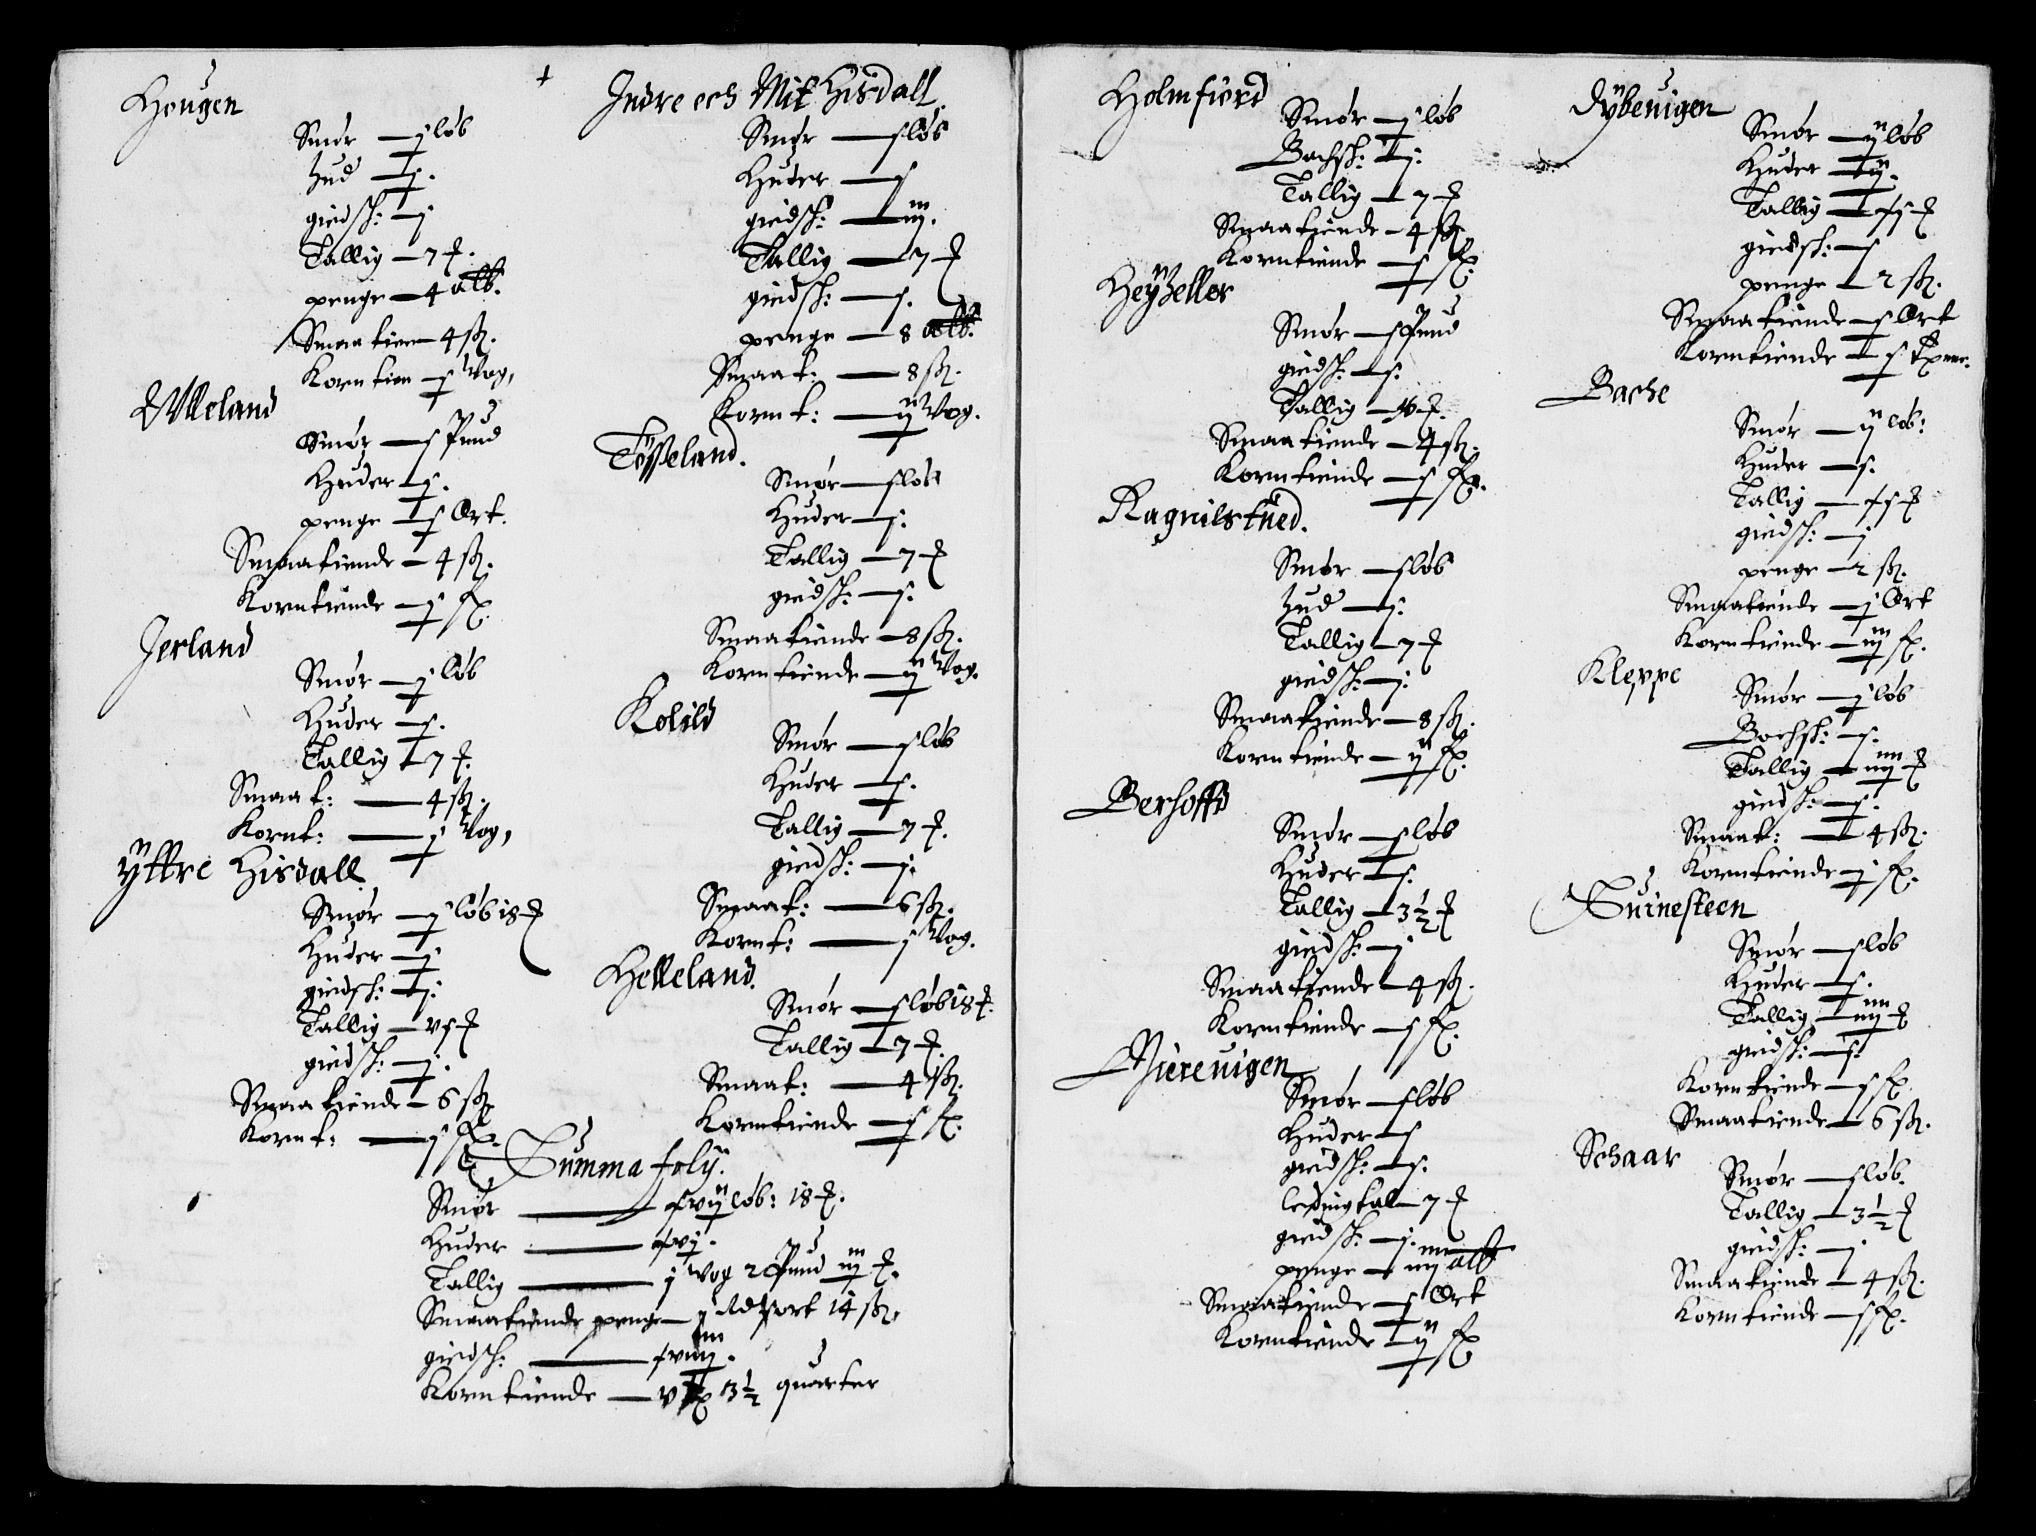 Hougen
Smør — j løb
hud — j.
giedsk: — j
Tallig — 7 ℔.
penge — 4 alb.
Smaatien — 4 ß.
Korntien — j Vog,
Ulleland
Smør — j Pund
Huder — j.
penge — j Ort.
Smaatiende — 4 ß.
Korntiende — j
Jerland
Smør — j løb
Huder — j.
Tallig — 7 ℔.
Smaat: — 4 ß.
Kornt: — j Vog,
Ÿttre Hisdall
Smør — j løb 18 ℔
Huder — j
giedsk: — j.
Tallig — vj ℔
giedsk: — j.
Smaatiende — 6 ß
Kornt: — j
Indre och Mit Hisdall
Smør — j løb
Huder — j
giedsk: — iij.
Tallig — 7 ℔
giedsk: — j.
penge — 8 alb.
Smaat: — 8 ß.
Kornt: — ij Vog.
Tÿsseland.
Smør — j løb
Huder — j.
Tallig — 7 ℔
giedsk: — j.
Smaatiende — 8 ß.
Korntiende — ij Vog.
Kolild
Smør — j løb
Huder — j.
Tallig — 7 ℔.
giedsk: — j.
Smaat: — 6 ß.
Kornt: — j Vog.
Helleland.
Smør — j løb 18 ℔.
Tallig — 7 ℔.
Smaat: — 4 ß.
Korntiende — j
Summa folÿ.
Smør — xvij løb: 18 ℔.
Huder — xvj.
Tallig — j Vog 2 Pund iij ℔.
Smaatiende penge — j ort 14 ß,
giedsk: — xviiij.
Korntiende — v 3½ quarter
Holmfiord
Smør — j løb
Bochsk: — j.
Tallig — 7 ℔
Smaatiende — 4 ß.
Korntiende — j
Heÿheller
Smør — j Pund
giedsk: — j.
Tallig — ℔.
Smaatiende — 4 ß.
Korntiende — j
Ragnilstued.
Smør — j løb
hud — j.
Tallig — 7 ℔
giedsk: — j.
Smaatiende — 8 ß.
Korntiende — ij
Berhoffd
Smør — j løb
Huder — j.
Tallig — 3½ ℔
giedsk: — j
Smaatiende — 4 ß.
Korntiende — j
Miereuigen
Smør — j løb
Huder — j
giedsk: — j.
ledingtal — 7 ℔
giedsk: — j.
penge — iiij alb
Smaatiende — j Ort
Korntiende — ij
Dÿbeuigen
Smør — ij løb
Huder — ij.
Tallig — xj ℔
giedsk: — j
penge — 2 ß.
Smaatiende — j Ort
Korntiende — j
Bache
Smør — ij løb:
Huder — j.
Tallig — xj ℔
giedsk: — j
penge — 2 ß.
Smaatiende — j Ort
Korntiende — iij
Kleppe
Smør — j løb
Bochsk: — j.
Tallig — iiij ℔
giedsk: — j.
Smaat: — 4 ß.
Korntiende — j
Suinesteen
Smør — j løb
Huder — j.
Tallig — iiij ℔
giedsk: — j.
Korntiende — j
Smaatiende — 6 ß.
Schaar
Smør — j løb.
Tallig — 3½ ℔
giedsk: — j
Smaatiende — 4 ß.
Korntiende — j